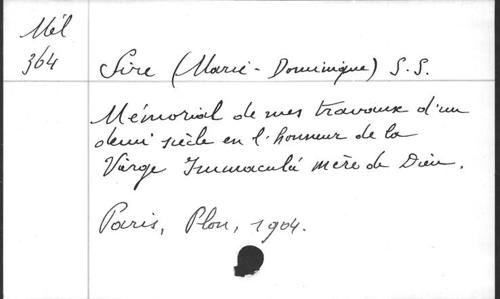 Mél
364
Sire (Marie-Dominique) S.S.
Mémorial de mes travaux d'un
demi siècle en l'honneur de la
Vierge Immaculée mère de Dieu.
Paris, Plon, 1904.